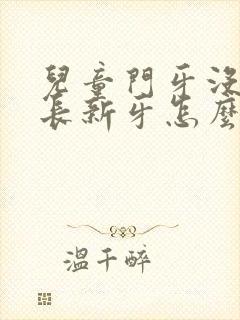 兒童門牙沒
長新牙怎麼
溫千醉